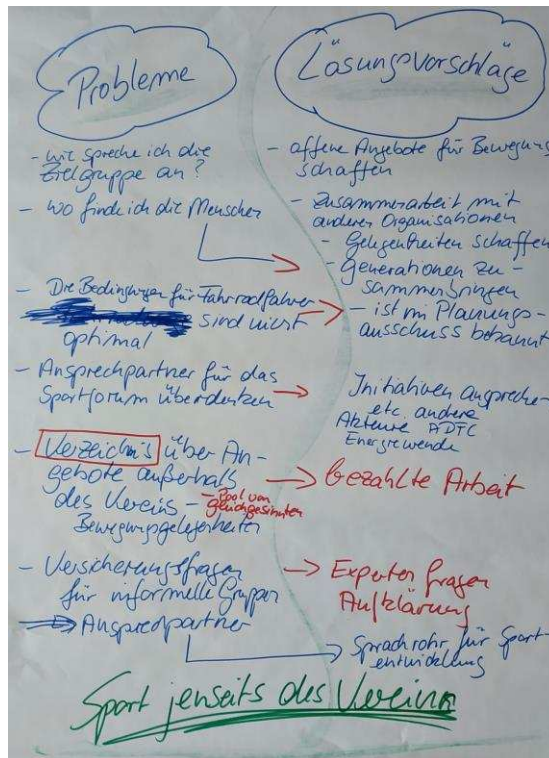 Probleme
- Wie spreche ich die
Zielgruppe an?
- wo finde ich die Menschen
- Die Bedingungen für Fahrradfahrer
sind nicht
optimal
- Ansprechpartner für das
Sportforum überdenken
- Verzeichnis über An-
gebote außerhalb
des Vereins - Pool von
gleichgesinnten
Bewegungsgelegenheiten
- Versicherungsfragen
für informelle Gruppen
Ansprechpartner
Lösungsvorschläge
- offene Angebote für Bewegung
schaffen
- Zusammenarbeit mit
anderen Organisationen
- Gelegenheiten schaffen
- Generationen zu-
sammenbringen
- ist im Planungs-
ausschuss bekannt
Initiativen anspreche
etc. andere
Akteure ADFC
Energiewende
bezahlte Arbeit
Experten fragen
Aufklärung
Sprachrohr für Sport-
entwicklung
Sport jenseits des Vereins